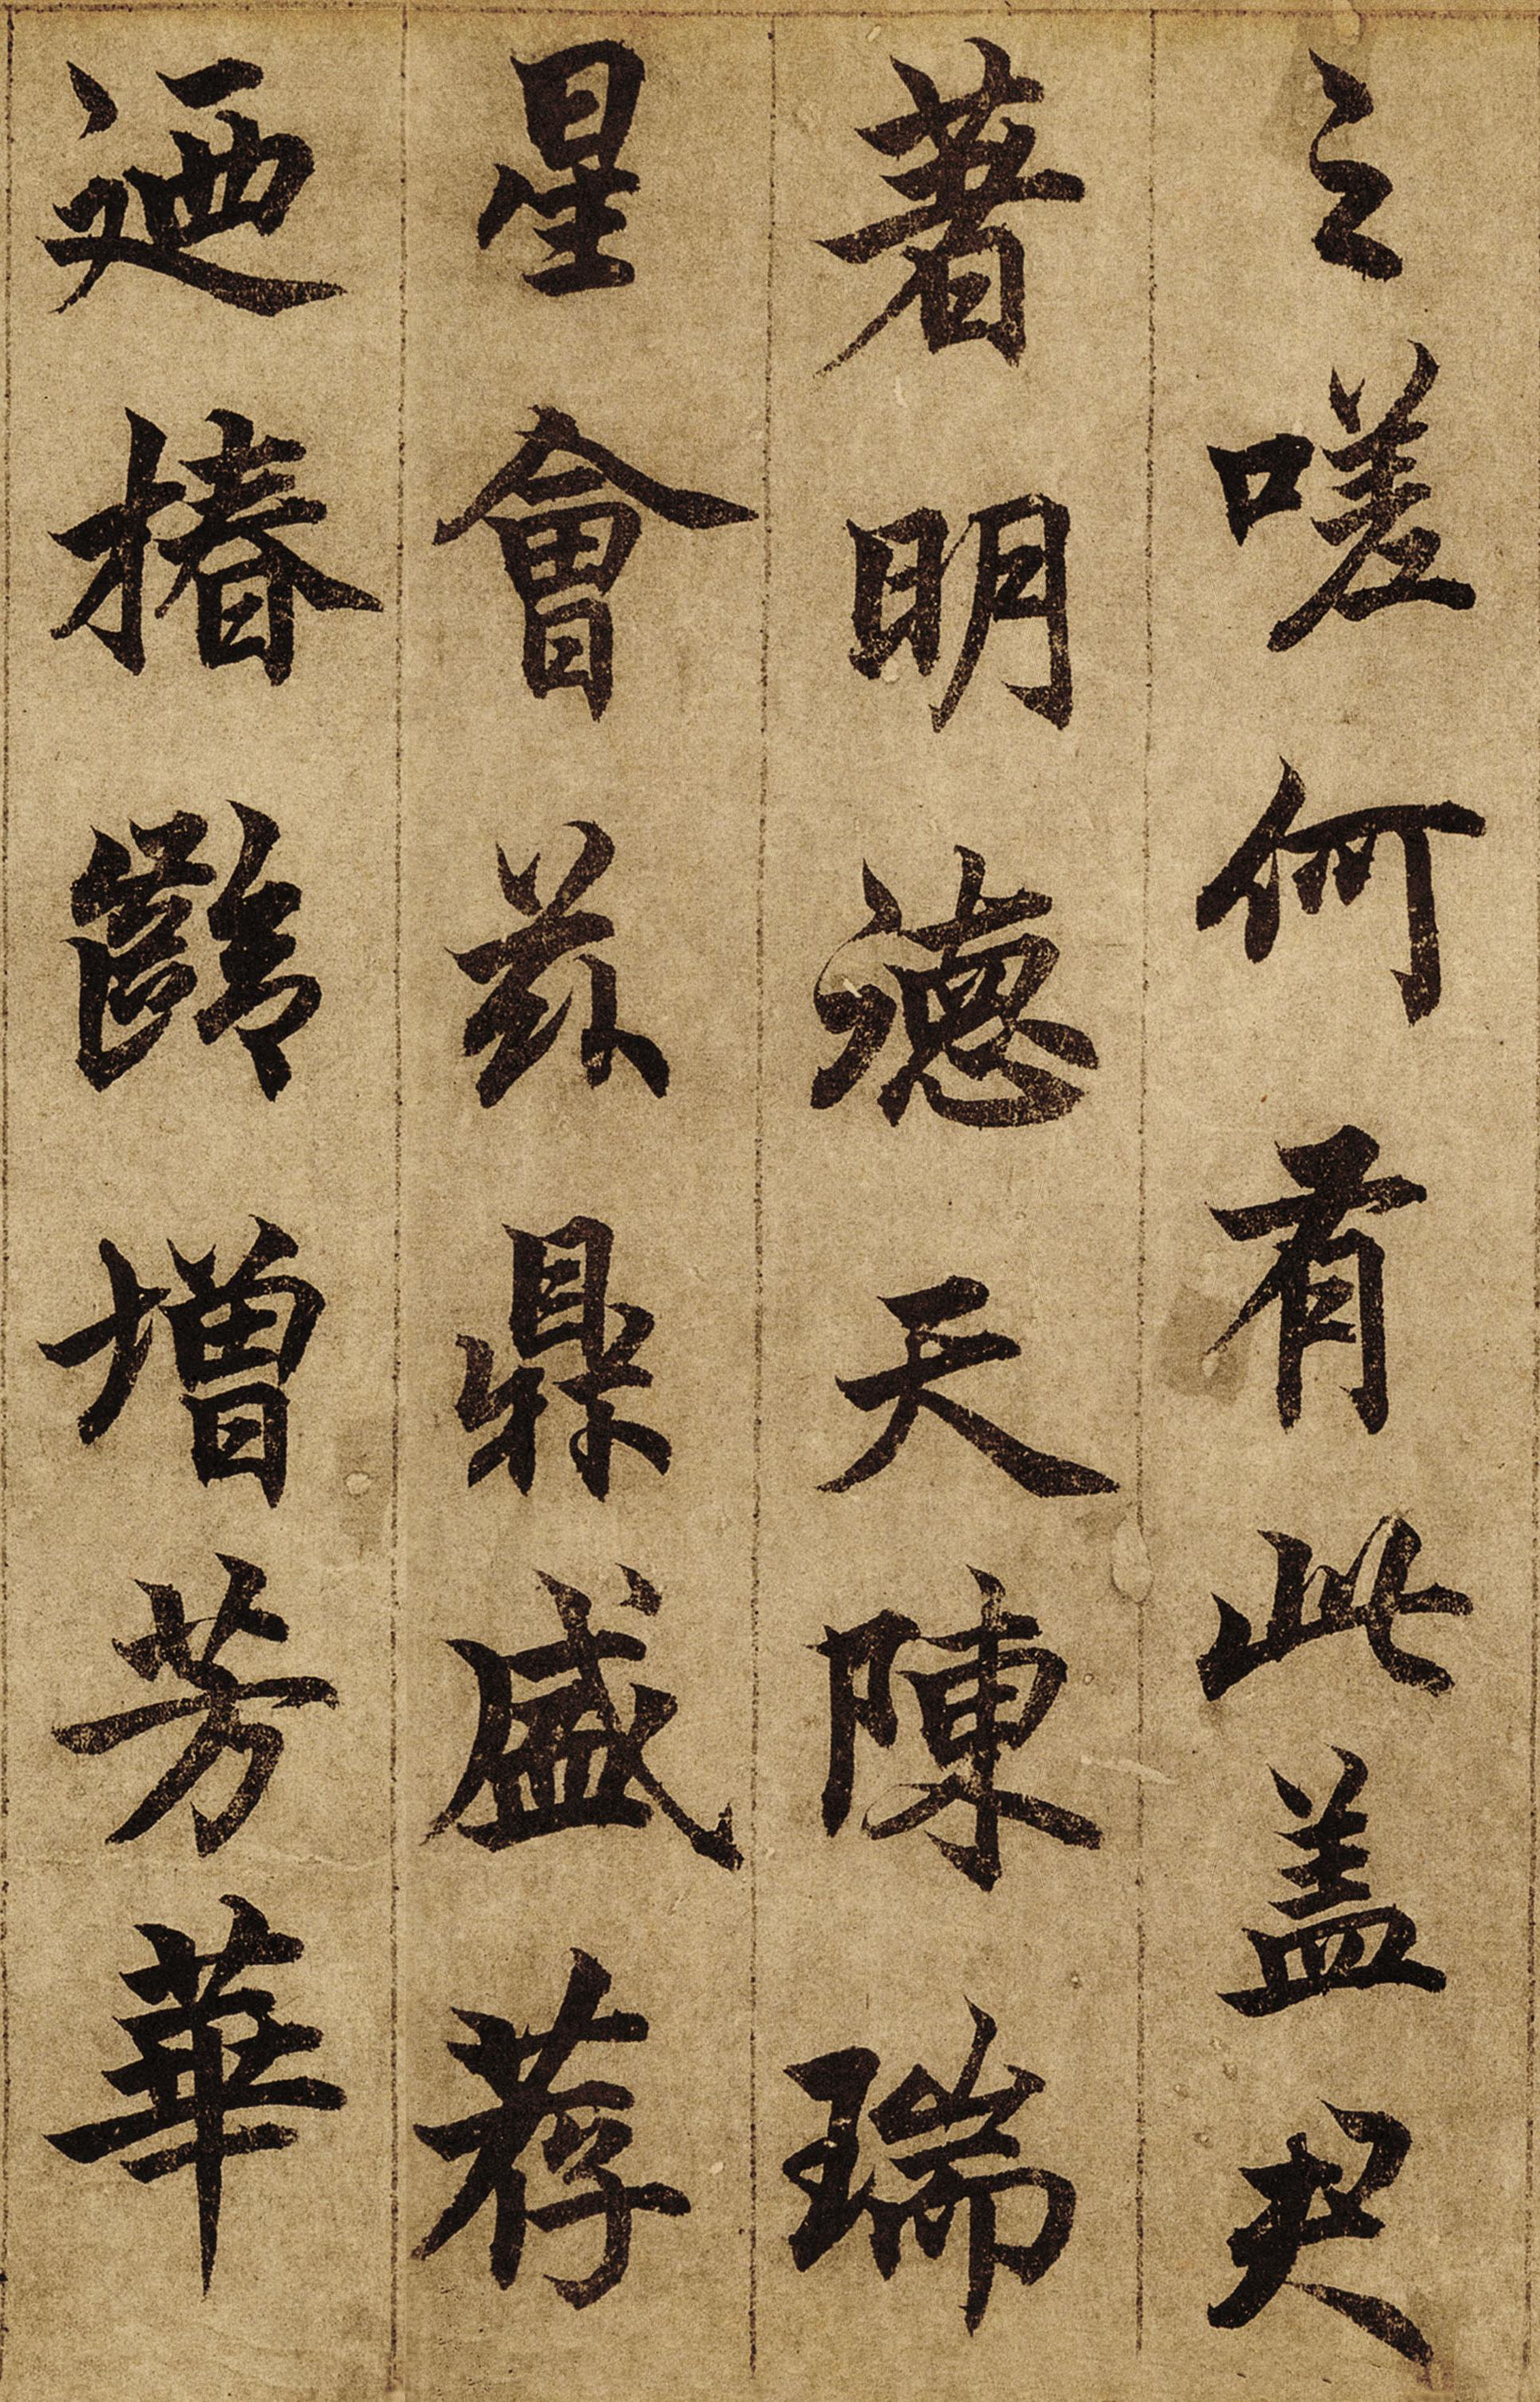 之嗟何有此盖史
著明德天陳瑞
星會茲鼎盛荐
迺椿齡增芳華